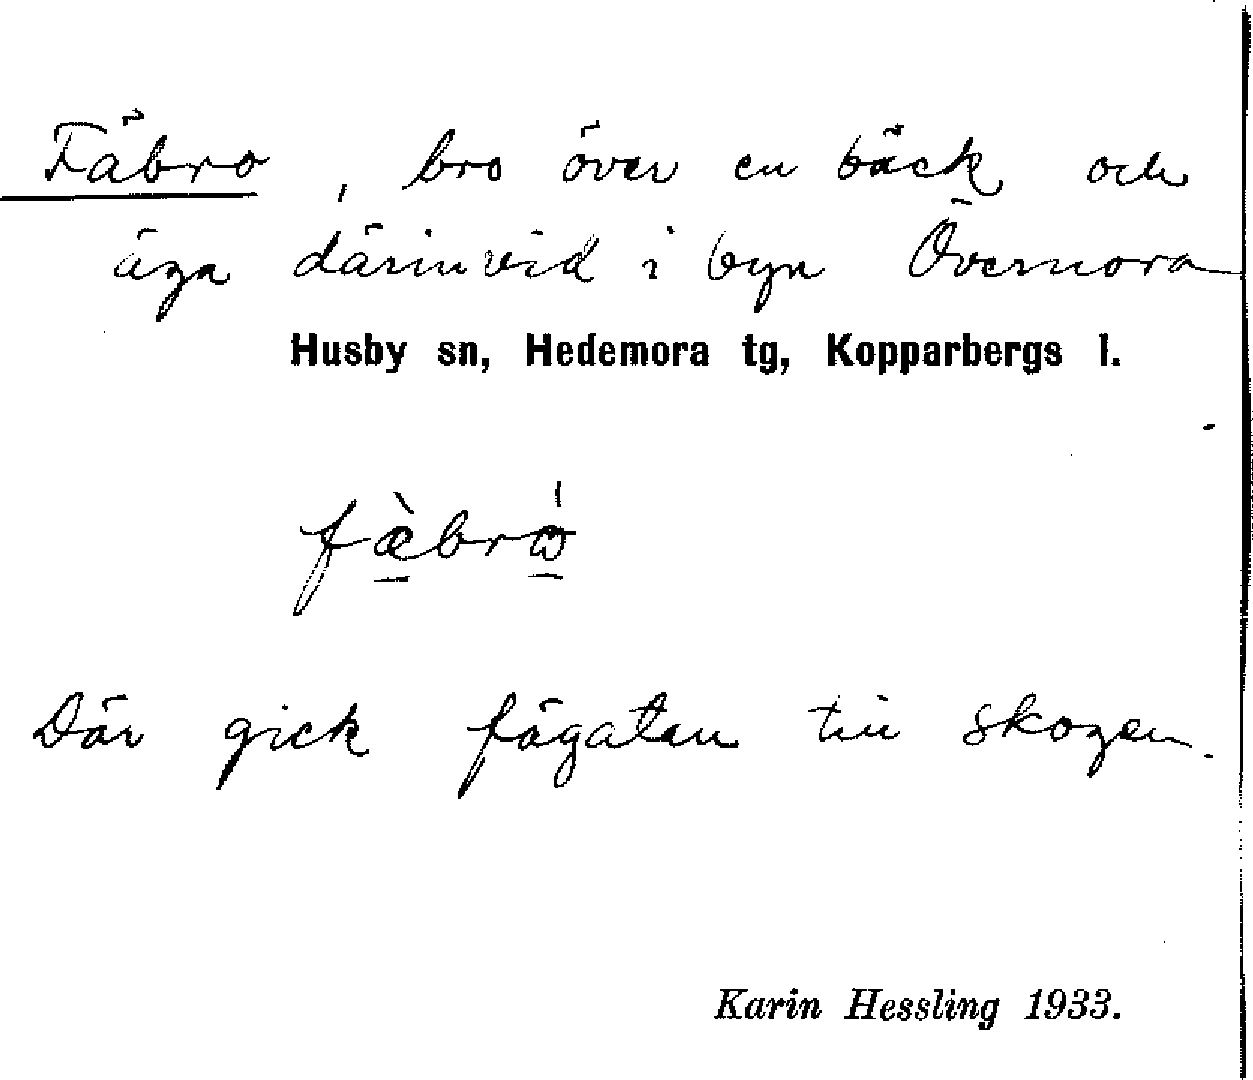 Fäbro, bro över en bäck och
äga därinvid i byn Övernora
Husby sn, Hedemora tg, Kopparbergs l.
fæ̀brὼ
Där gick fägatan till skogen.
Karin Hessling 1933.